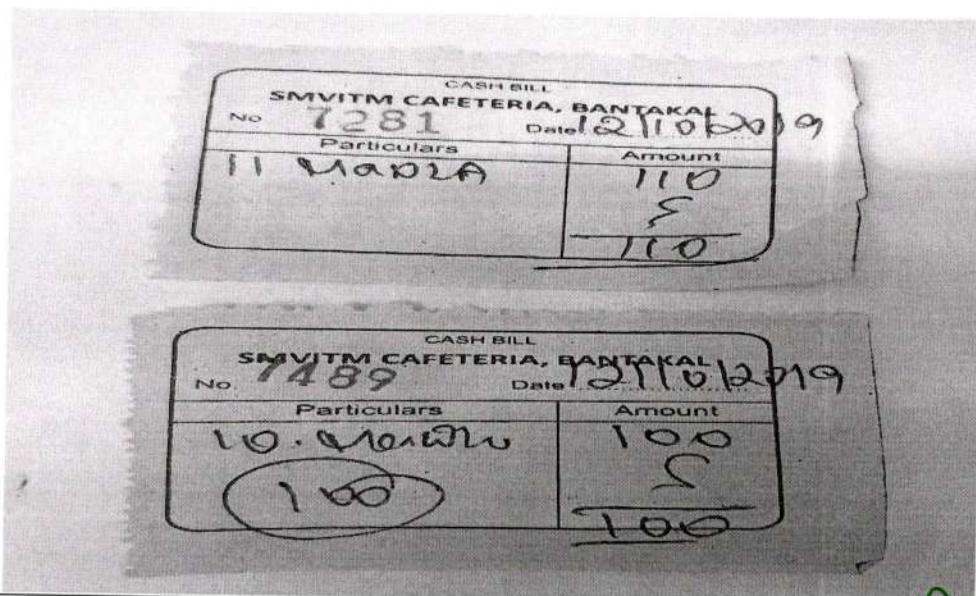 CASH BILL
SMVITM CAFETERIA, BANTAKAL
No 7281 Date 12/10/2019
Particulars Amount
11 110
110
CASH BILL
SMVITM CAFETERIA, BANTAKAL
No. 7489 Date 12/10/2019
Particulars Amount
10. 100
100
100